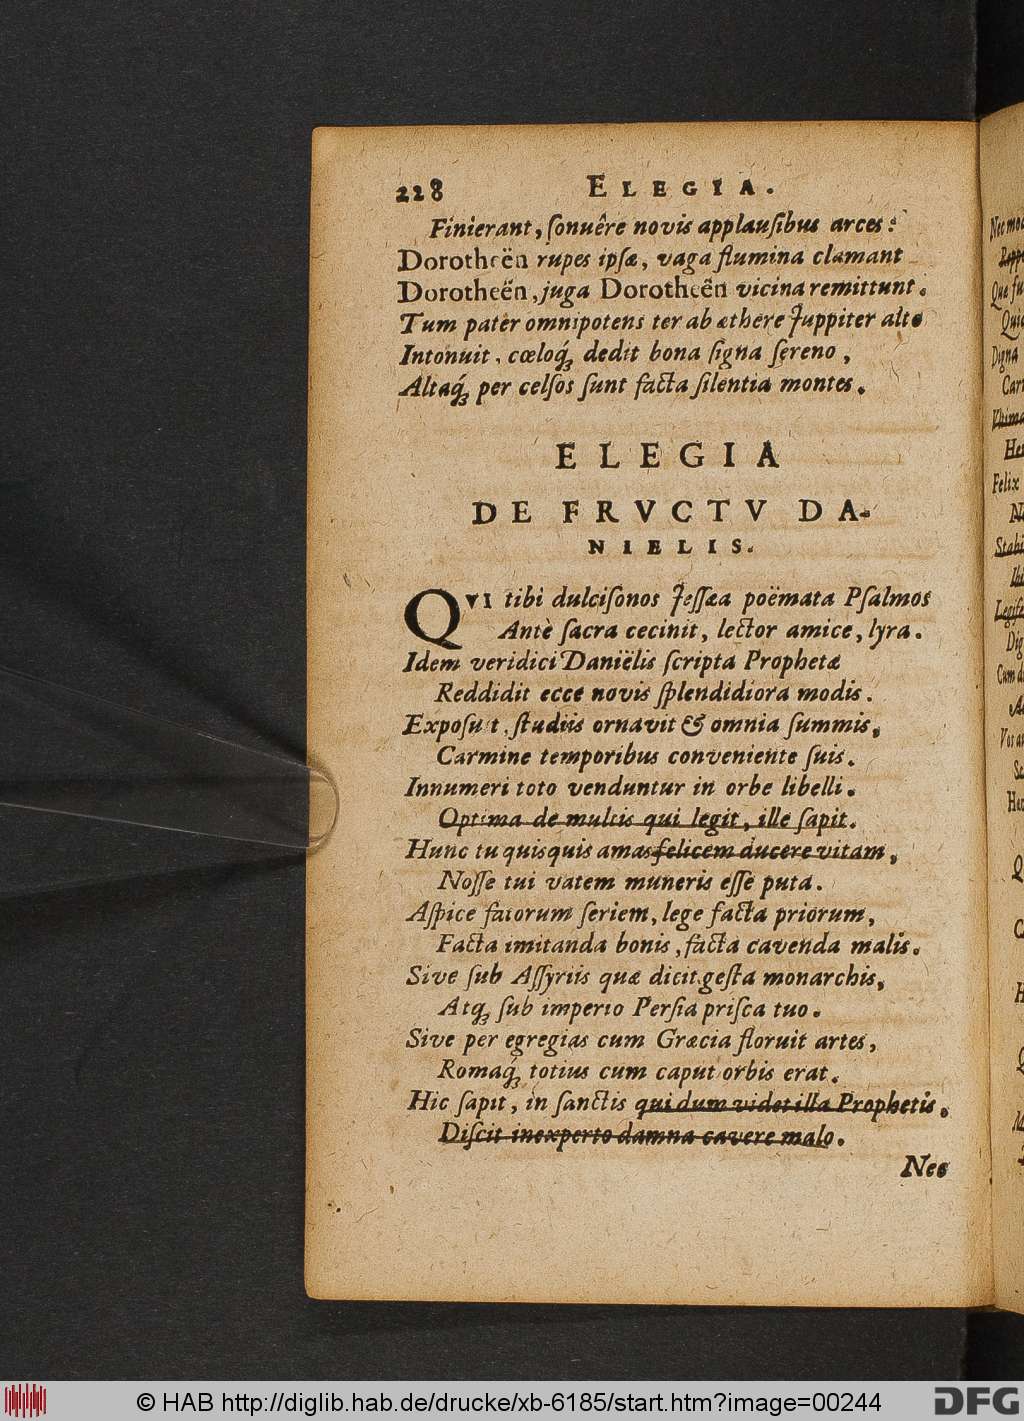 228 ELEGIA.
Finierant, ſonuêre novis applauſibus arces:
Dorotheën rupes ipſæ, vaga flumina clamant
Dorotheën, juga Dorotheën vicina remittunt.
Tum pater omnipotens ter ab æthere Juppiter alto
Intonuit, cœloq́ꝫ dedit bona ſigna ſereno,
Altaq́ꝫ per celſos ſunt facta ſilentia montes.
ELEGIA
DE FRVCTV DA-
NIELIS.
QVI tibi dulciſonos Jeſſæa poëmata Pſalmos
Antè ſacra cecinit, lector amice, lyra.
Idem veridici Daniëlis ſcripta Prophetæ
Reddidit ecce novis ſplendidiora modis.
Expoſuit, ſtudiis ornavit & omnia ſummis,
Carmine temporibus conveniente ſuis.
Innumeri toto venduntur in orbe libelli.
Optima de multis qui legit, ille ſapit.
Hunc tu quisquis amas felicem ducere vitam,
Noſſe tui vatem muneris eſſe puta.
Aſpice fatorum ſeriem, lege facta priorum,
Facta imitanda bonis, facta cavenda malis.
Sive ſub Aſſyriis quæ dicit geſta monarchis,
Atqꝫ ſub imperio Perſia priſca tuo.
Sive per egregias cum Græcia floruit artes,
Romaq́ꝫ totius cum caput orbis erat.
Hic ſapit, in ſanctis qui dum videt illa Prophetis,
Diſcit inexperto damna cavere malo.
Nec
Nec mod
Quæ fu
Quid
Digna
Car
Felix
Stabi
Dig
Cum d
Vos a
© HAB http://diglib.hab.de/drucke/xb-6185/start.htm?image=00244
DFG